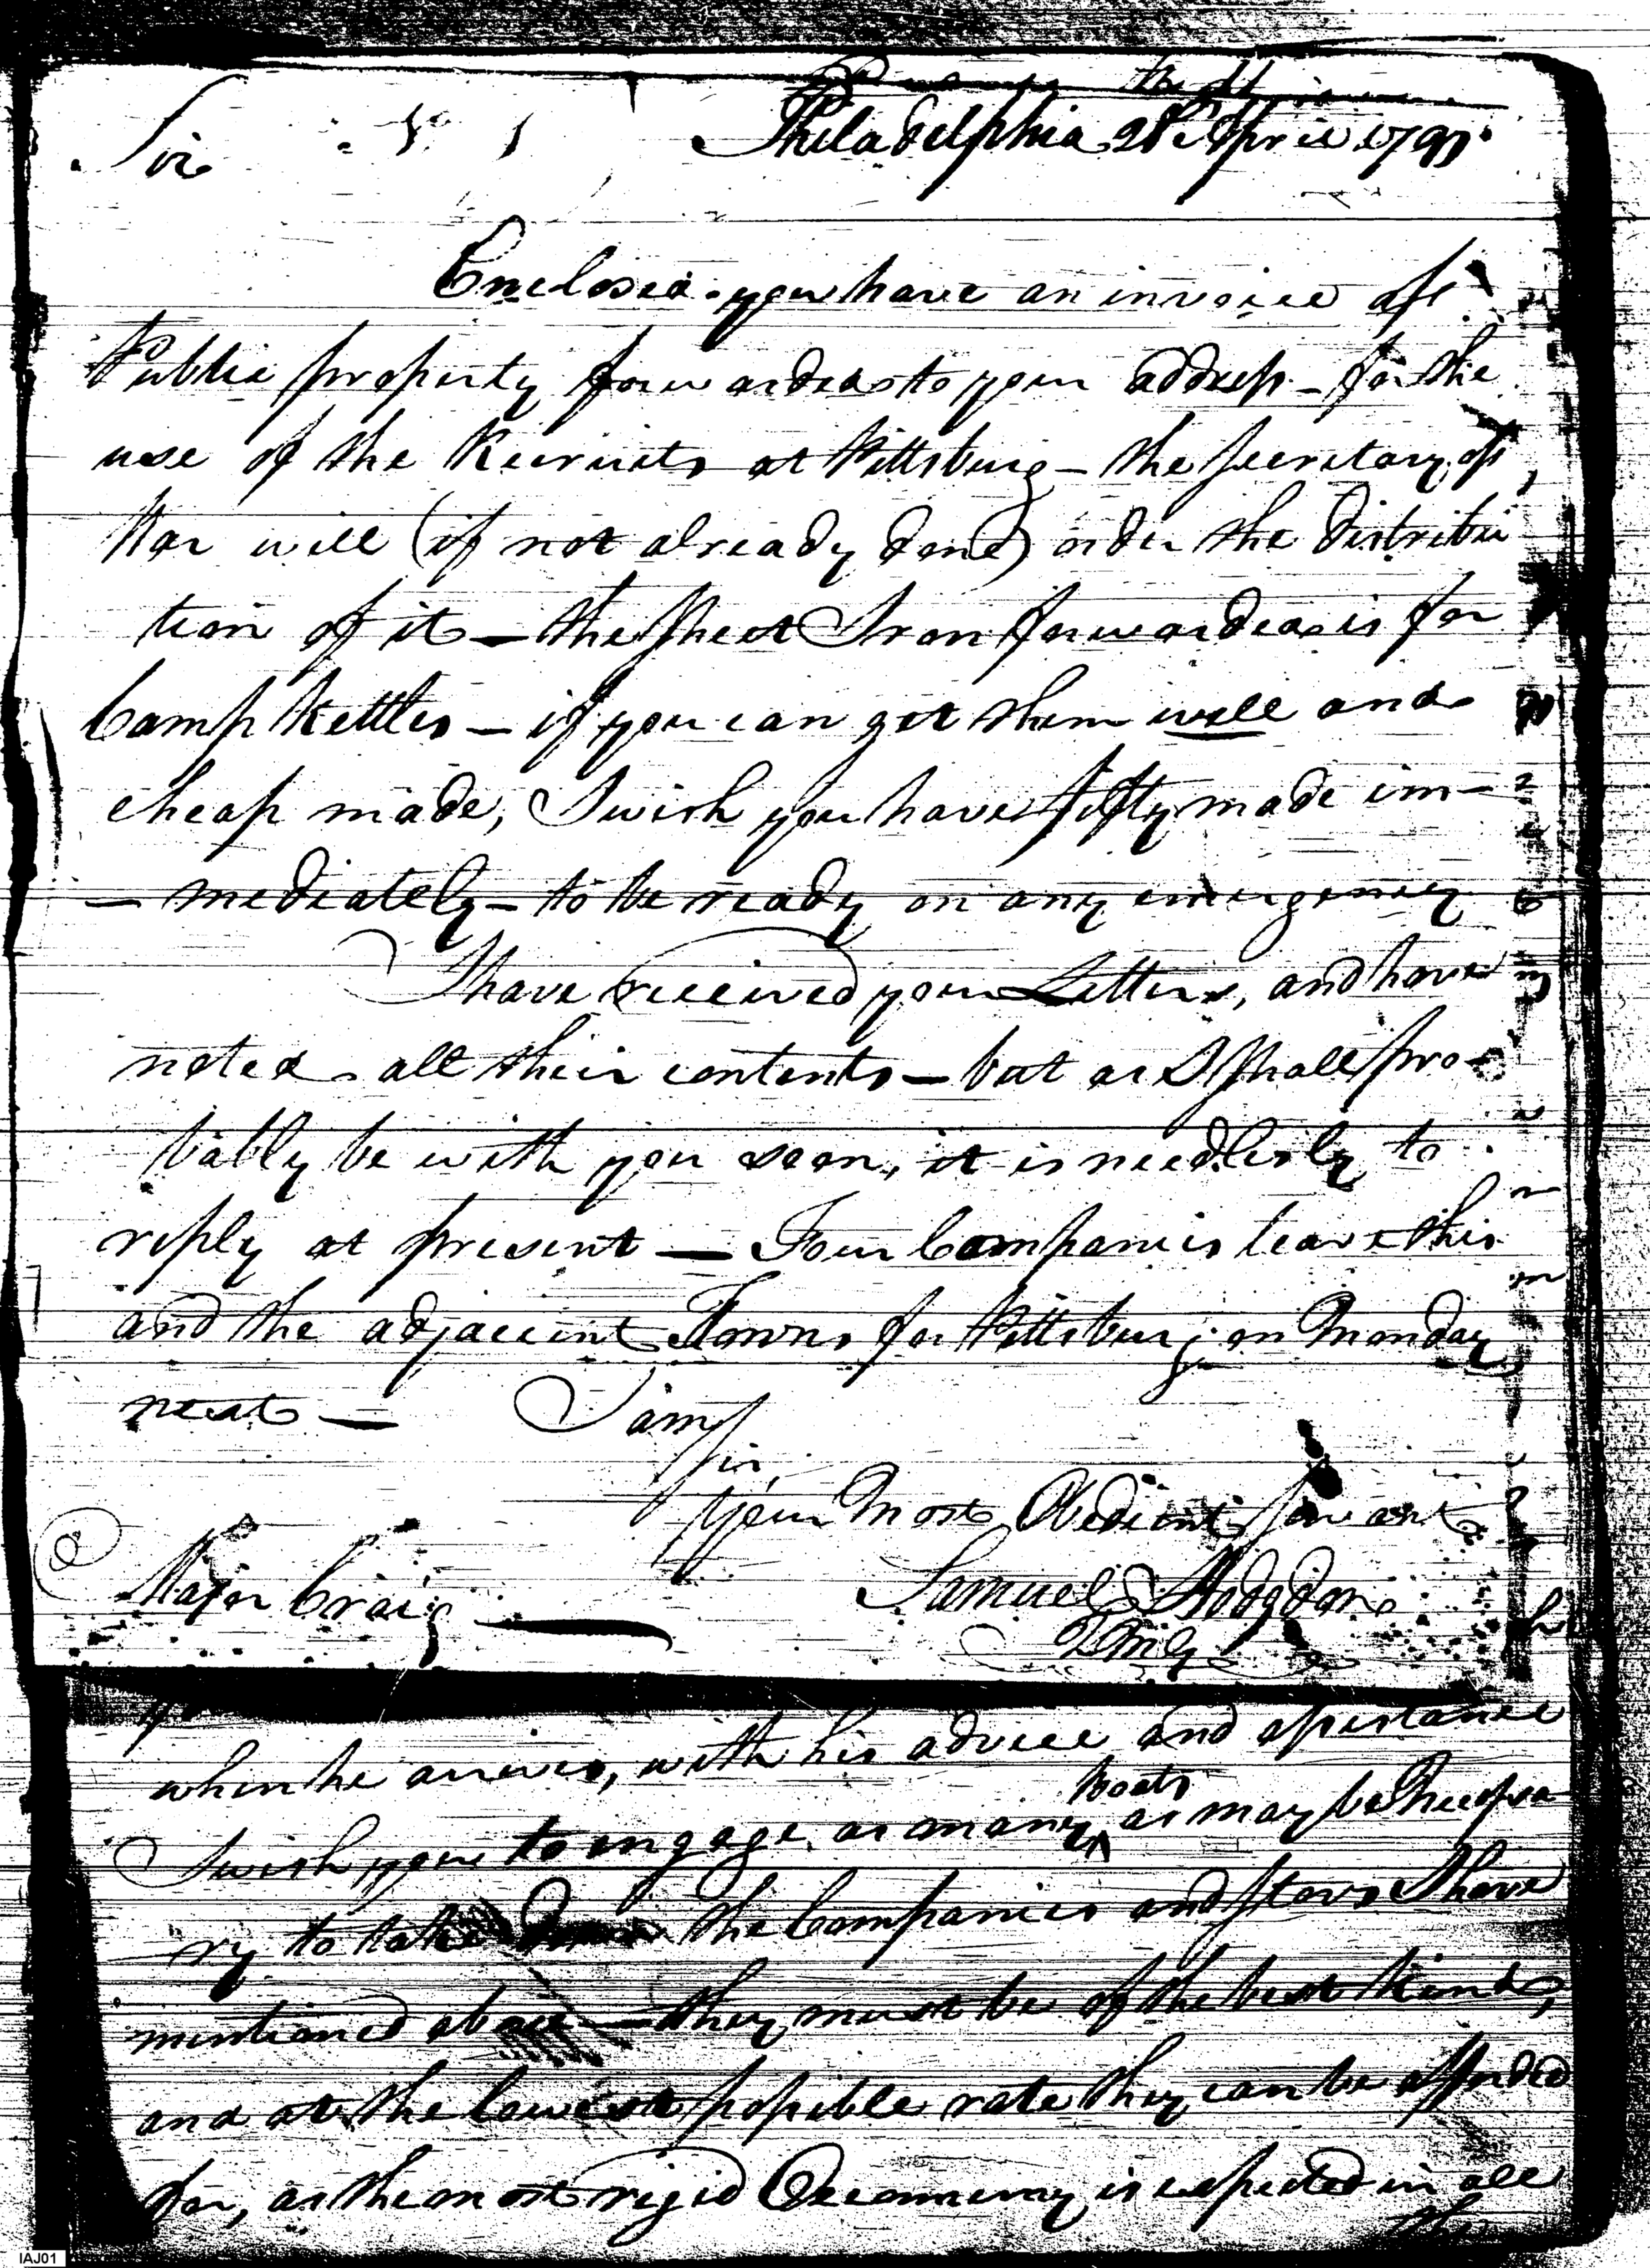 Philadelphia 28th April 1791.
Sir
Enclosed you have an invoice of
Public property forwarded to your address - for the
use of the Recruits at Pittsburg - the Secretary of
War will (if not already done) order the distribu
tion of it - the Sheet Iron forwarded is for
Camp Kettles - if you can get them well and
cheap made, I wish you have fifty made im-
- mediately - to be ready on any emergency
I have received your Letters, and have
noted all their contents - but as I shall pro-
bably be with you soon, it is needlesly to
reply at present - Four Companies leave this
and the adjacent Towns for Pittsburg on Monday
next - I am
Sir,
Your Most Obedient Servant
Samuel Hodgdon
QMG
Major Craig
when he arrives, with his advice and assistance
I wish you to engage as many Boats as may be Necessa
ry to take down the Companies and Stores I have
mentioned above - they must be of the best kind,
and at the lowest possible rate they can be afforded
for, as the most rigid Oeconomy is expected in all
the
IAJ01